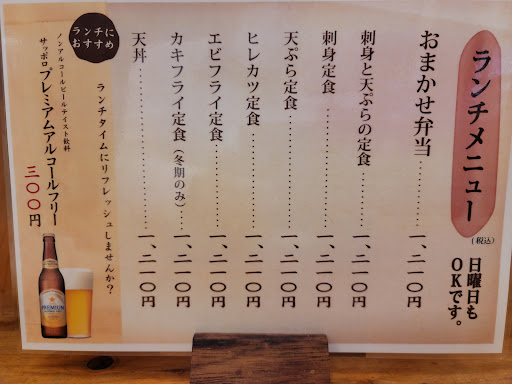 ランチメニュー
(税込)
日曜日も
OKです。
おまかせ弁当…………一、二一〇円
刺身と天ぷらの定食………一、二一〇円
刺身定食………………一、二一〇円
天ぷら定食……………一、二一〇円
ヒレカツ定食…………一、二一〇円
エビフライ定食…………一、二一〇円
カキフライ定食(冬期のみ)……一、二一〇円
天丼…………………一、二一〇円
ランチに
おすすめ
ランチタイムにリフレッシュしませんか?
ノンアルコールビールテイスト飲料
サッポロプレミアムアルコールフリー
三〇〇円
PREMIUM